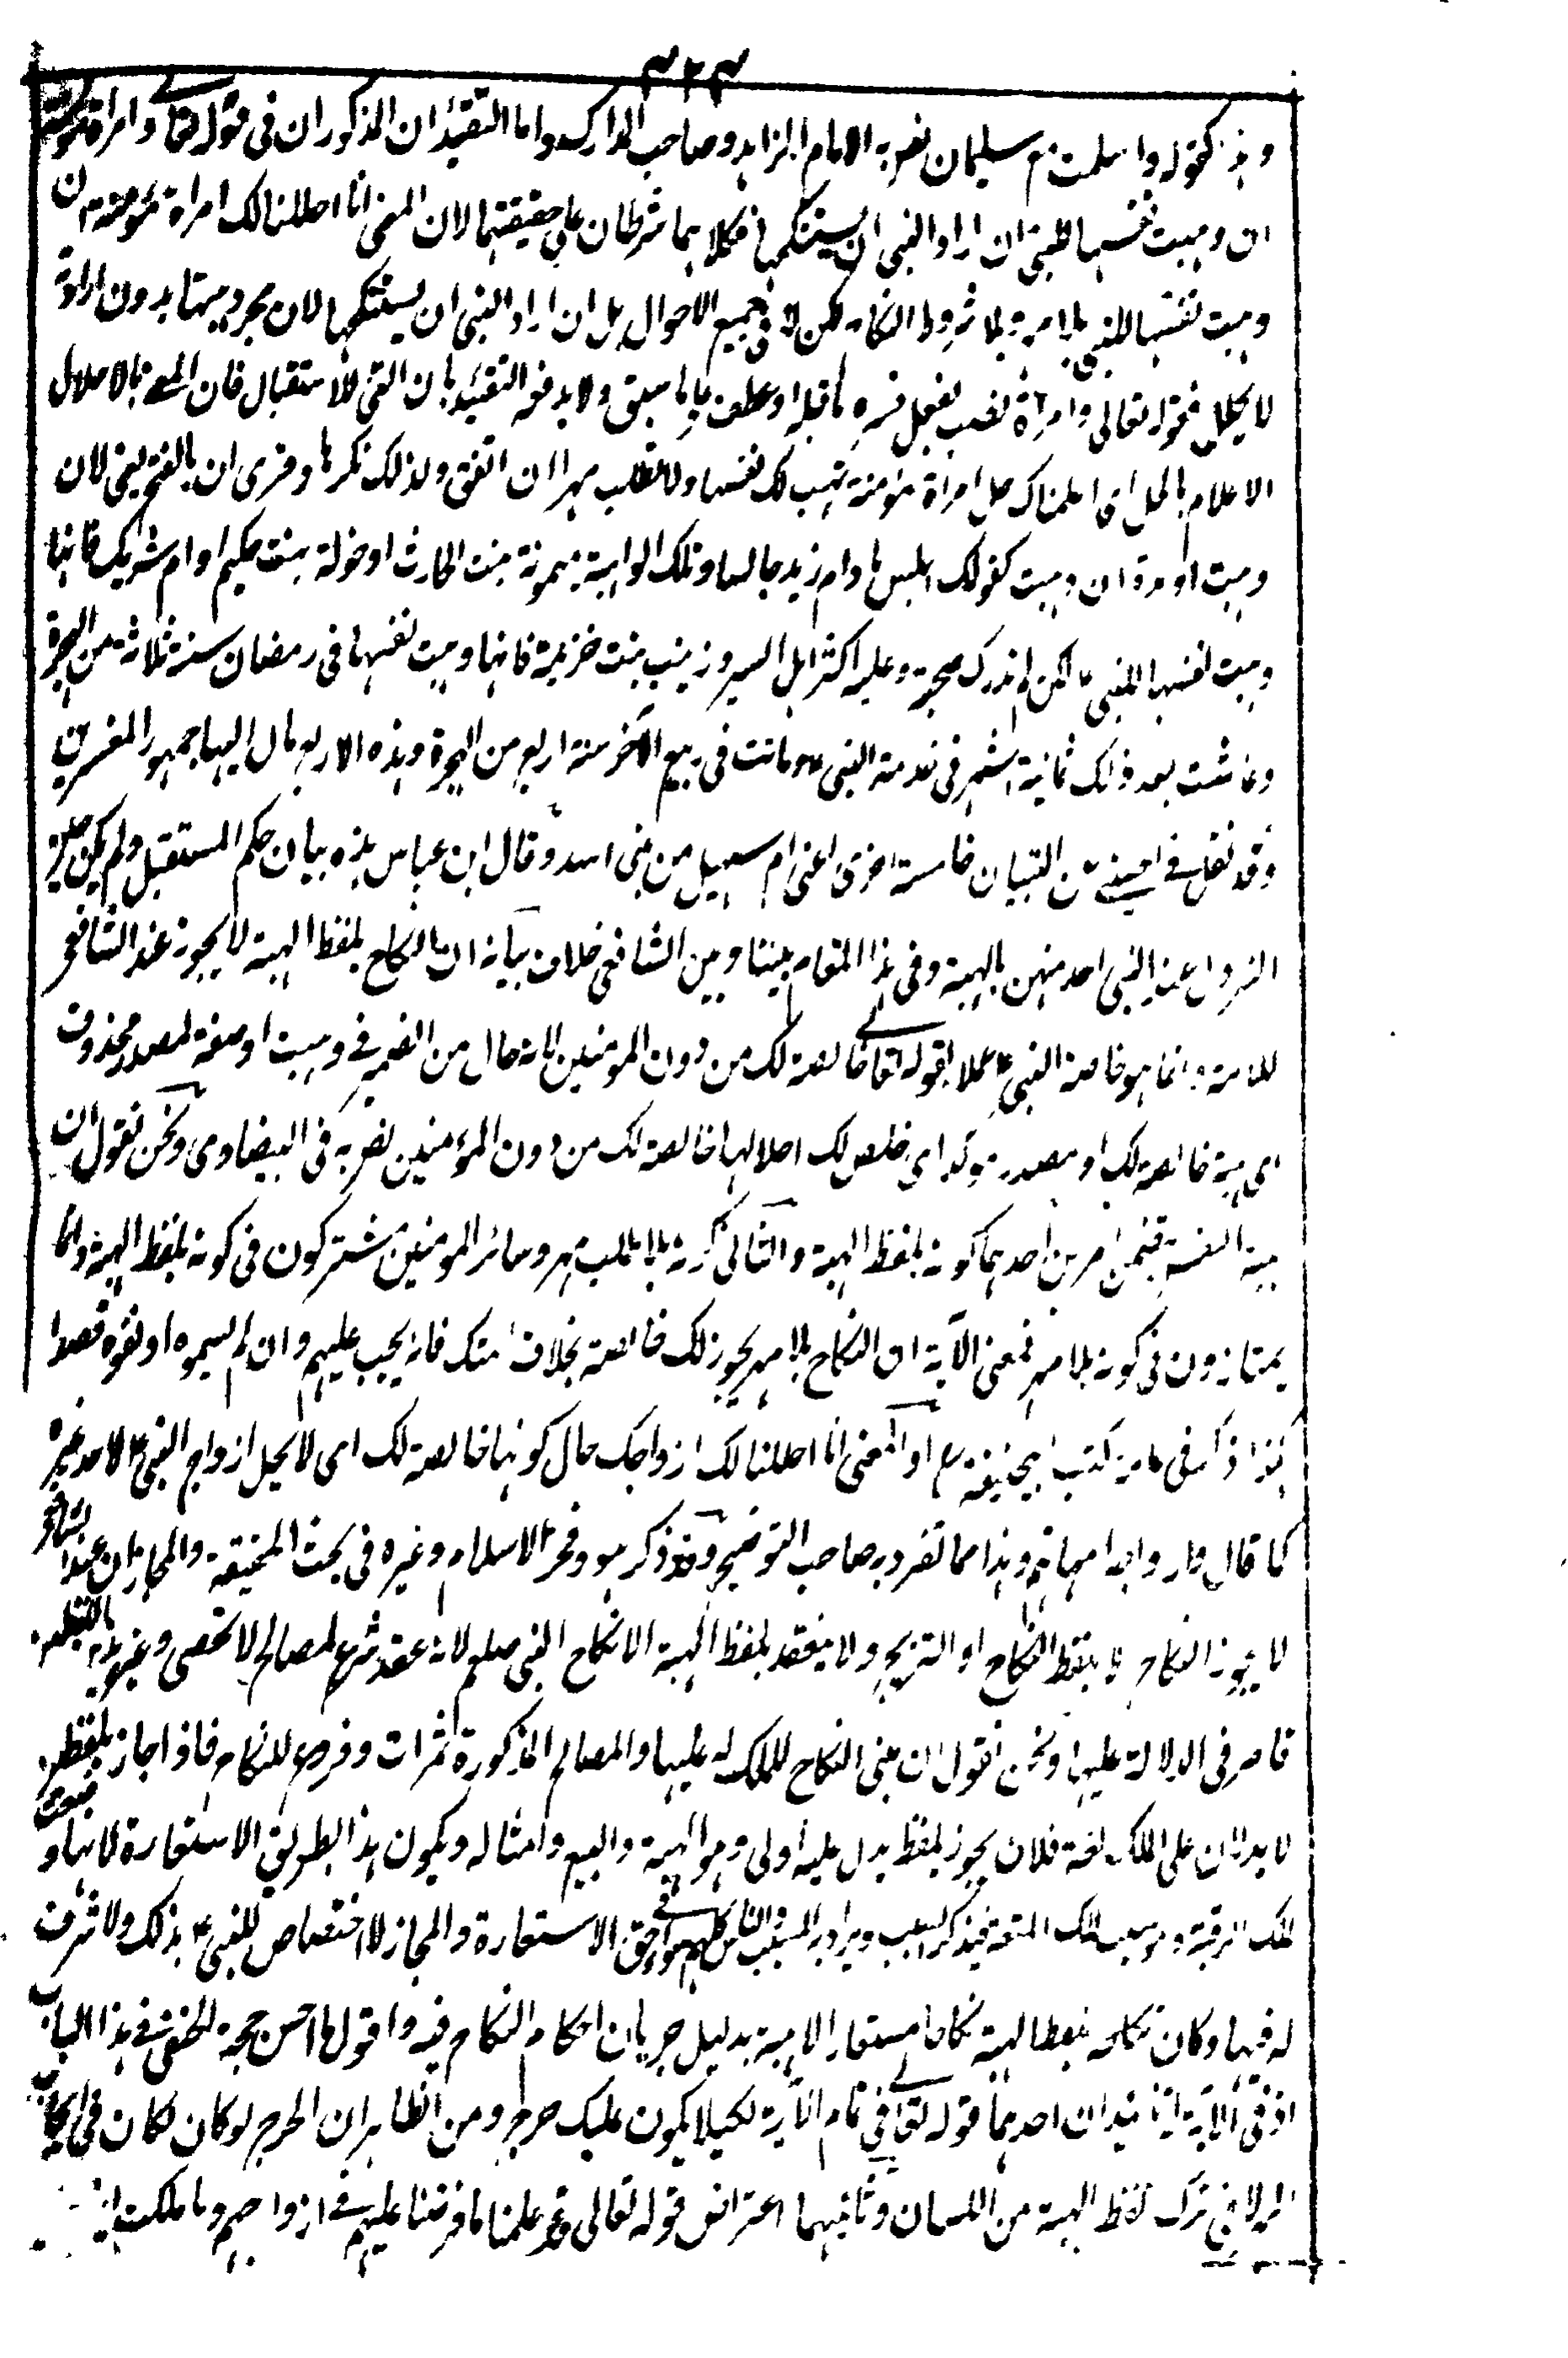 ٤٢٣
وهذا كقوله واسلمت مع سليمان نص به الامام الزاهد وصاحب المدارك واما التقييدان المذكوران في قوله تعالى وامراة مؤمنة
ان وهبت نفسها للنبي ان اراد النبي ان يستنكحها فكلاهما شرطان على حقيقتهما لان المعنى انا احللنا لك امراة مؤمنة ان
وهبت نفسها للنبي بلا مهر وبلا شروط النكاح لكن لا في جميع الاحوال بل ان اراد النبي ان يستنكحها لان مجرد هبتها بدون ارادة
لا يحلل فقوله تعالى وامرأة نصب بفعل فسره ما قبله او عطف على ما سبق ولا يدفعه التقييد بان التي للاستقبال فان المعنى بالاحلال
الاعلام بالحل اى اعلمناك حل امراة مؤمنة تهب لك نفسها ولا تطلب مهرا ان اتفق ولذلك نكرها وقرى ان بالفتح يعني لان
وهبت او مدة ان وهبت كقولك اجلس ما دام زيد جالسا وتلك الواهبة ميمونة بنت الحارث او خولة بنت حكيم او ام شريك فانها
وهبت نفسها للنبي ع لكن لم تدرك صحبة وعليه اكثر اهل السير و زينب بنت خزيمة فانها وهبت نفسها في رمضان سنة ثلاثة من الهجرة
وعاشت بعد ذلك ثمانية اشهر في خدمة النبي ع وماتت في ربيع الآخر سنة اربع من الهجرة وهذه الاربع مال اليها جمهور المفسرين
وقد نقل في الحسيني من التبيان خامسة اخرى اعنى ام سهيل من بني اسد وقال ابن عباس هذه بيان حكم المستقبل ولم يكن حين
النزول عند النبي احد منهن بالهبة وفي هذا المقام بيننا وبين الشافعي خلاف بيانه ان النكاح بلفظ الهبة لا يجوز عند الشافعي
للامة وانما هو خاصة النبي ع عملا بقوله تعالى خالصة لك من دون المؤمنين لانه حال من الضمير في وهبت او صفة لمصدر محذوف
اى هبة خالصة لك او مصدر موكد اى خلص لك احلالها خالصة لك من دون المؤمنين نص به في البيضاوى ونحن نقول ان
هبة النفس تتضمن امرين احدهما كونه بلفظ الهبة والثاني كونه بلا طلب مهر وسائر المؤمنين مشتركون في كونه بلفظ الهبة وانما
يمتازون في كونه بلا مهر فمعنى الآية ان النكاح بلا مهر يجوز لك خالصة بخلاف امتك فانه يجب عليهم وان لم يسموه او نفوه قصدا
هكذا ذكر في عامة كتب ابيحنيفة رح او المعنى انا احللنا لك ازواجك حال كونها خالصة لك اى لا يحل ازواج النبي ع لاحد غيره
كما قال وازواجه امهاتهم وهذا مما تفرد به صاحب التوضيح وقد ذكر هو وفخر الاسلام وغيره في بحث الحقيقة والمجاز ان عند الشافعي
لا يجوز النكاح الا بلفظ النكاح او التزويج ولا ينعقد بلفظ الهبة الا نكاح النبي صلعم لانه عقد شرع لمصالح لا تحصى وغير هذين اللفظين
قاصر في الدلالة عليها ونحن نقول ان مبنى النكاح للملك له عليها والمصالح المذكورة ثمرات وفروع للنكاح فاذا جاز بلفظين
لا يدلان على الملك لغة فلان يجوز بلفظ يدل عليه اولى وهو الهبة والبيع وامثاله ويكون هذا بطريق الاستعارة لانها وضعت
لملك الرقبة وهو سبب لملك المتعة فيذكر السبب ويراد به المسبب والناس كلهم سواء في حق الاستعارة والمجاز لا اختصاص للنبي ع بذلك ولا شرف
له فيها وكان نكاحه بلفظ الهبة نكاحا مستعارا لا هبة بدليل جريان احكام النكاح فيه واقول ما احسن حجة الحنفي في هذا الباب
اذ في الآية تائيدان احدهما قوله تعالى في تمام الآية لكيلا يكون عليك حرج ومن الظاهر ان الحرج لو كان لكان في ايجاب
المهر لا في ترك لفظ الهبة من اللسان وثانيهما اعتراض قوله تعالى قد علمنا ما فرضنا عليهم في ازواجهم وما ملكت